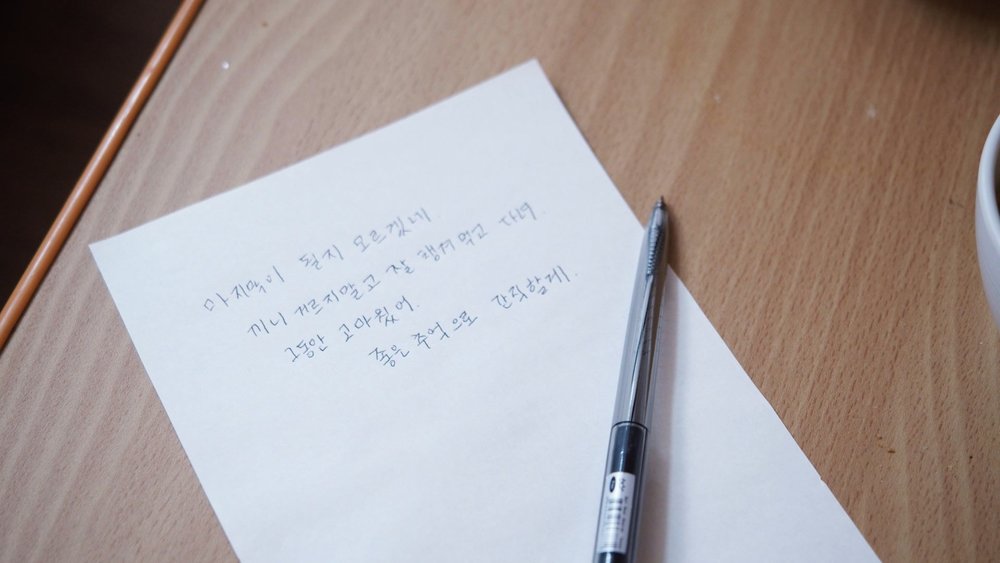 마지막이 될지 모르겠네.
끼니 거르지말고 잘 챙겨먹고 다녀.
그동안 고마웠어.
좋은 추억으로 간직할게.